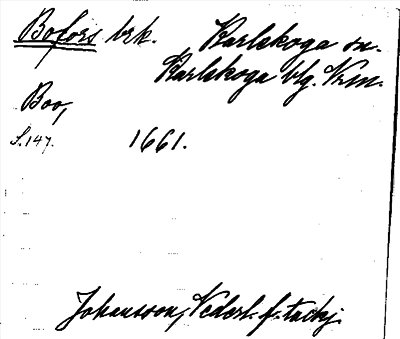 Bofors brk. Karlskoga sn.
Karlskoga blg. Vrm.
Boo,
S. 147. 1661.
Johansson, Nederl. f. tackj.